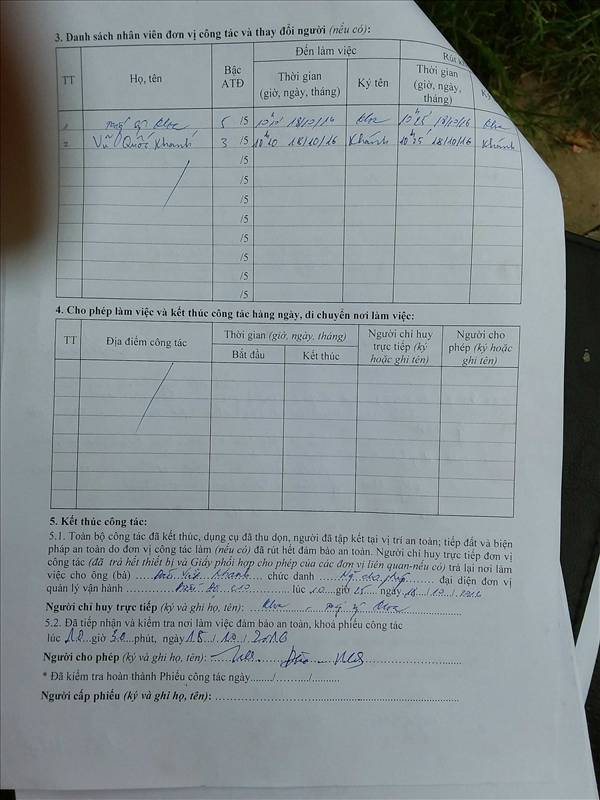 3. Danh sách nhân viên đơn vị công tác và thay đổi người (nếu có):
TT Họ, tên Bậc ATĐ Đến làm việc Rút
Thời gian (giờ, ngày, tháng) Ký tên Thời gian (giờ, ngày, tháng) Ký
1 5 /5 Khoa Khoa
2 Vũ Quốc Khánh 3 /5 10h10 18/10/16 Khánh 10h25 18/10/16 Khánh
/5
/5
/5
/5
/5
/5
/5
/5
4. Cho phép làm việc và kết thúc công tác hàng ngày, di chuyển nơi làm việc:
TT Địa điểm công tác Thời gian (giờ, ngày, tháng) Người chỉ huy trực tiếp (ký hoặc ghi tên) Người cho phép (ký hoặc ghi tên)
Bắt đầu Kết thúc
5. Kết thúc công tác:
5.1. Toàn bộ công tác đã kết thúc, dụng cụ đã thu dọn, người đã tập kết tại vị trí an toàn; tiếp đất và biện
pháp an toàn do đơn vị công tác làm (nếu có) đã rút hết đảm bảo an toàn. Người chỉ huy trực tiếp đơn vị
công tác (đã trả hết thiết bị và Giấy phối hợp cho phép của các đơn vị liên quan-nếu có) trả lại nơi làm
việc cho ông (bà) chức danh đại diện đơn vị
quản lý vận hành lúc 10 giờ 25 ngày 18 / 10 /
Người chỉ huy trực tiếp (ký và ghi họ, tên): Khoa
5.2. Đã tiếp nhận và kiểm tra nơi làm việc đảm bảo an toàn, khoá phiếu công tác
lúc 10 giờ 30 phút, ngày 18 / 10 / 2016
Người cho phép (ký và ghi họ, tên):
* Đã kiểm tra hoàn thành Phiếu công tác ngày......../........./..........
Người cấp phiếu (ký và ghi họ, tên):